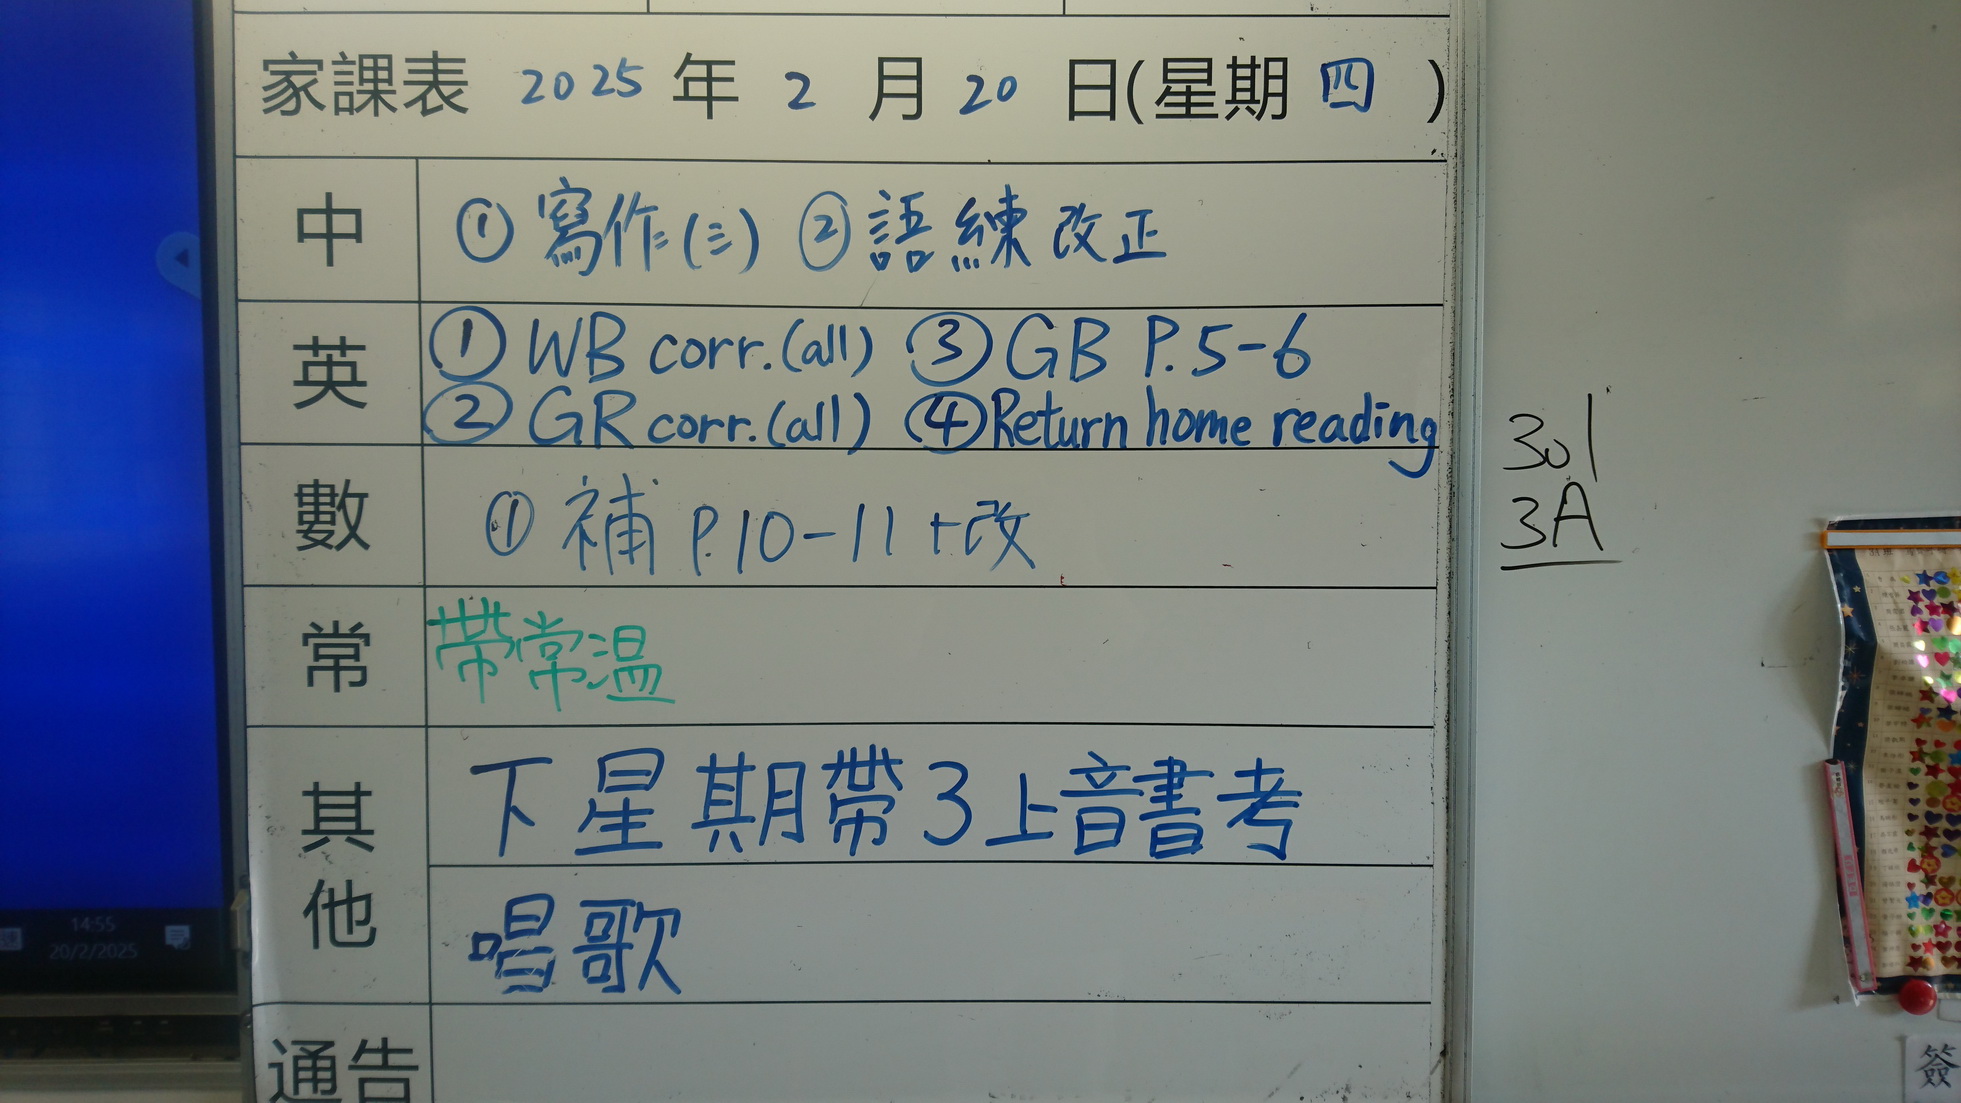 家課表 2025 年 2 月 20 日(星期 四 )
中 ① 寫作(三) ② 語練改正
英 ① WB corr.(all) ③ GB P.5-6
② GR corr.(all) ④ Return home reading
數 ① 補 P.10-11 + 改
常 帶常溫
其他 下星期帶3上音書考
唱歌
通告
301
3A
14:55
20/2/2025
簽